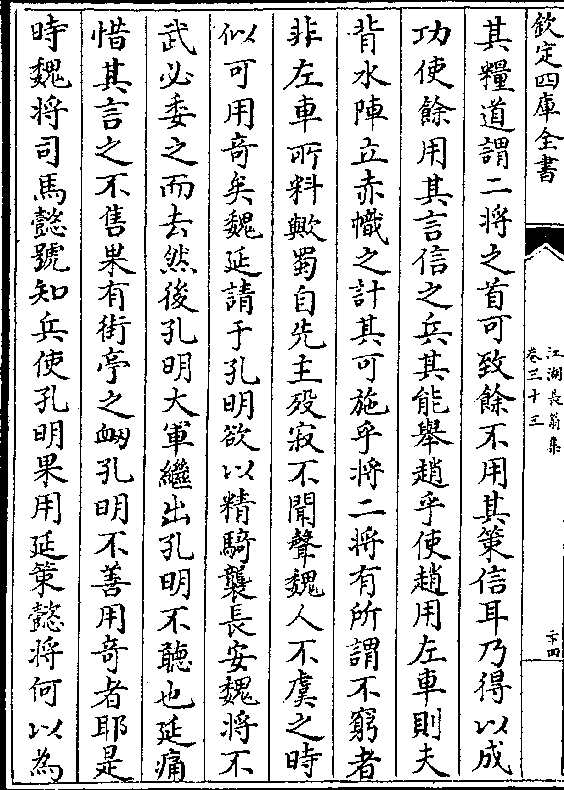 欽定四庫全書
江湖長翁集
卷三十三
二十四
其糧道謂二將之首可致餘不用其策信耳乃得以成
功使餘用其言信之兵其能舉趙乎使趙用左車則夫
背水陣立赤幟之計其可施乎將二將有所謂不窮者
非左車所料歟蜀自先主歿寂不聞聲魏人不虞之時
似可用奇矣魏延請于孔明欲以精騎襲長安魏將不
武必委之而去然後孔明大軍繼出孔明不聽也延痛
惜其言之不售果有街亭之衂孔明不善用奇者耶是
時魏将司馬懿號知兵使孔明果用延策懿將何以為